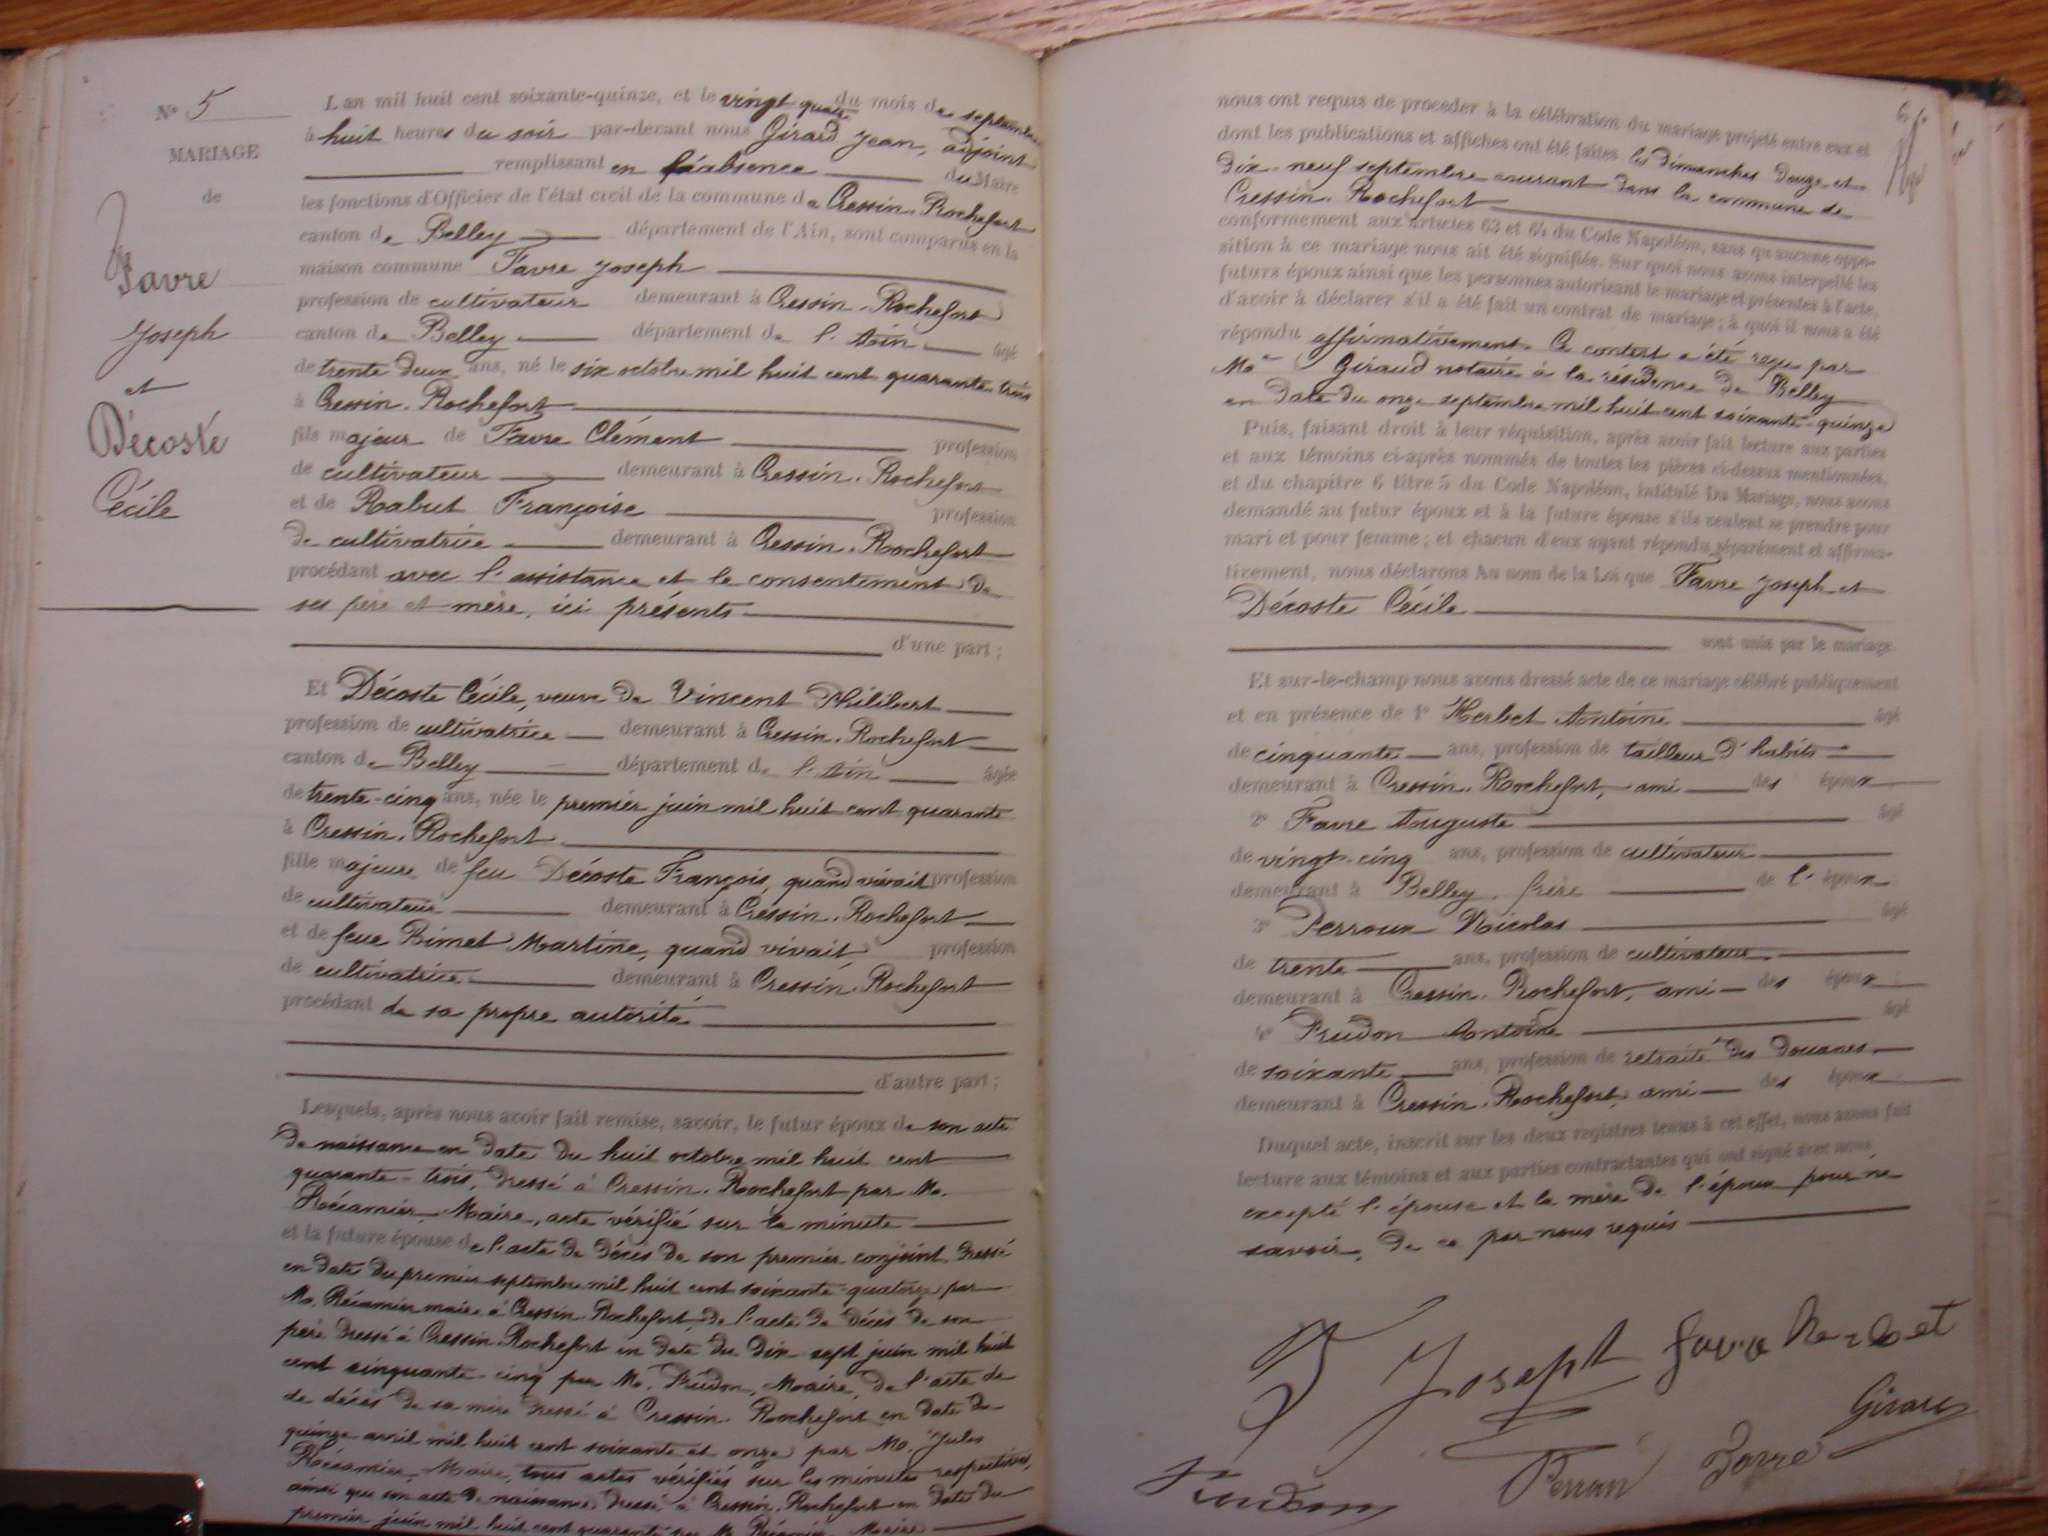 N° 5
MARIAGE
de
Favre
Joseph
et
Décoste
Cécile
L'an mil huit cent soixante-quinze, et le vingt quatre du mois de septembre
à huit heures du soir par-devant nous Girard Jean, adjoint
remplissant en l'absence du Maire
les fonctions d'Officier de l'état civil de la commune de Cressin-Rochefort
canton de Belley département de l'Ain, sont comparus en la
maison commune Favre Joseph
profession de cultivateur demeurant à Cressin-Rochefort
canton de Belley département de l'Ain âgé
de trente deux ans, né le six octobre mil huit cent quarante-trois
à Cressin-Rochefort
fils majeur de Favre Clément profession
de cultivateur demeurant à Cressin-Rochefort
et de Rabut Françoise profession
de cultivatrice demeurant à Cressin-Rochefort
procédant avec l'assistance et le consentement de
ses père et mère, ici présents
d'une part;
Et Décoste Cécile, veuve de Vincent Philibert
profession de cultivatrice demeurant à Cressin-Rochefort
canton de Belley département de l'Ain âgée
de trente-cinq ans, née le premier juin mil huit cent quarante
à Cressin-Rochefort
fille majeure de feu Décoste François, quand vivait profession
de cultivateur demeurant à Cressin-Rochefort
et de feue Bimet Martine, quand vivait profession
de cultivatrice demeurant à Cressin-Rochefort
procédant de sa propre autorité
d'autre part;
Lesquels, après nous avoir fait remise, savoir, le futur époux de son acte
de naissance en date du huit octobre mil huit cent
quarante-trois, dressé à Cressin-Rochefort par M.
Récamier, Maire, acte vérifié sur la minute
et la future épouse de l'acte de décès de son premier conjoint dressé
en date du premier septembre mil huit cent soixante-quatorze par
M. Récamier maire à Cressin-Rochefort, de l'acte de décès de son
père dressé à Cressin-Rochefort en date du dix-sept juin mil huit
cent cinquante-cinq par M. Prudon, Maire, de l'acte de
de décès de sa mère dressé à Cressin-Rochefort en date du
quinze avril mil huit cent soixante et onze par M. Jules
Récamier, Maire, tous actes vérifiés sur les minutes respectives,
ainsi que son acte de naissance dressé à Cressin-Rochefort en date du
premier juin mil huit cent quarante par M. Récamier, Maire
nous ont requis de procéder à la célébration du mariage projeté entre eux et
dont les publications et affiches ont été faites les dimanches douze et
dix-neuf septembre courant dans la commune de
Cressin-Rochefort
conformément aux articles 63 et 64 du Code Napoléon, sans qu'aucune oppo-
sition à ce mariage nous ait été signifiée. Sur quoi nous avons interpellé les
futurs époux ainsi que les personnes autorisant le mariage et présentes à l'acte,
d'avoir à déclarer s'il a été fait un contrat de mariage; à quoi il nous a été
répondu affirmativement. Ce contert a été reçu par
Me Giraud notaire à la résidence de Belley
en date du onze septembre mil huit cent soixante-quinze
Puis, faisant droit à leur réquisition, après avoir fait lecture aux parties
et aux témoins ci-après nommés de toutes les pièces ci-dessus mentionnées,
et du chapitre 6 titre 5 du Code Napoléon, intitulé Du Mariage, nous avons
demandé au futur époux et à la future épouse s'ils veulent se prendre pour
mari et pour femme; et chacun d'eux ayant répondu séparément et affirma-
tivement, nous déclarons Au nom de la Loi que Favre Joseph et
Décoste Cécile
sont unis par le mariage.
Et sur-le-champ nous avons dressé acte de ce mariage célébré publiquement
et en présence de 1° Herbet Antoine âgé
de cinquante ans, profession de tailleur d'habits
demeurant à Cressin-Rochefort, ami des époux
2° Favre Auguste âgé
de vingt-cinq ans, profession de cultivateur
demeurant à Belley, frère de l'époux
3° Perroux Nicolas âgé
de trente ans, profession de cultivateur
demeurant à Cressin-Rochefort, ami des époux
4° Prudon Antoine âgé
de soixante ans, profession de retraité des douanes
demeurant à Cressin-Rochefort, ami des époux
Duquel acte, inscrit sur les deux registres tenus à cet effet, nous avons fait
lecture aux témoins et aux parties contractantes qui ont signé avec nous
excepté l'épouse et la mère de l'époux pour ne
savoir, de ce par nous requis
Joseph favre Herbet
Girard
Prudon Perroux Favre